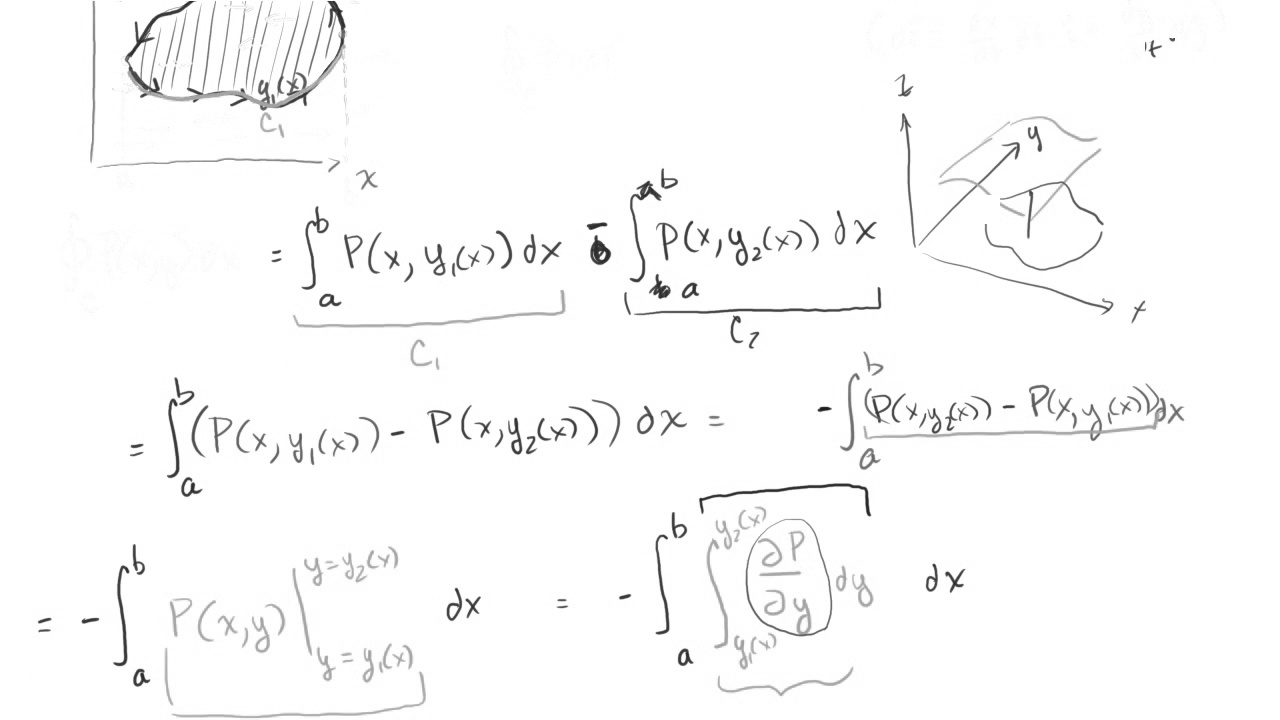 y₁(x)
C₁
x
z
y
x
= ∫_a^b P(x, y₁(x)) dx - ∫_a^b P(x, y₂(x)) dx
C₁
C₂
= ∫_a^b (P(x, y₁(x)) - P(x, y₂(x))) dx = - ∫_a^b (P(x, y₂(x)) - P(x, y₁(x))) dx
= - ∫_a^b P(x,y) |_{y = y₁(x)}^{y = y₂(x)} dx = - ∫_a^b ∫_{y₁(x)}^{y₂(x)} ∂P/∂y dy dx